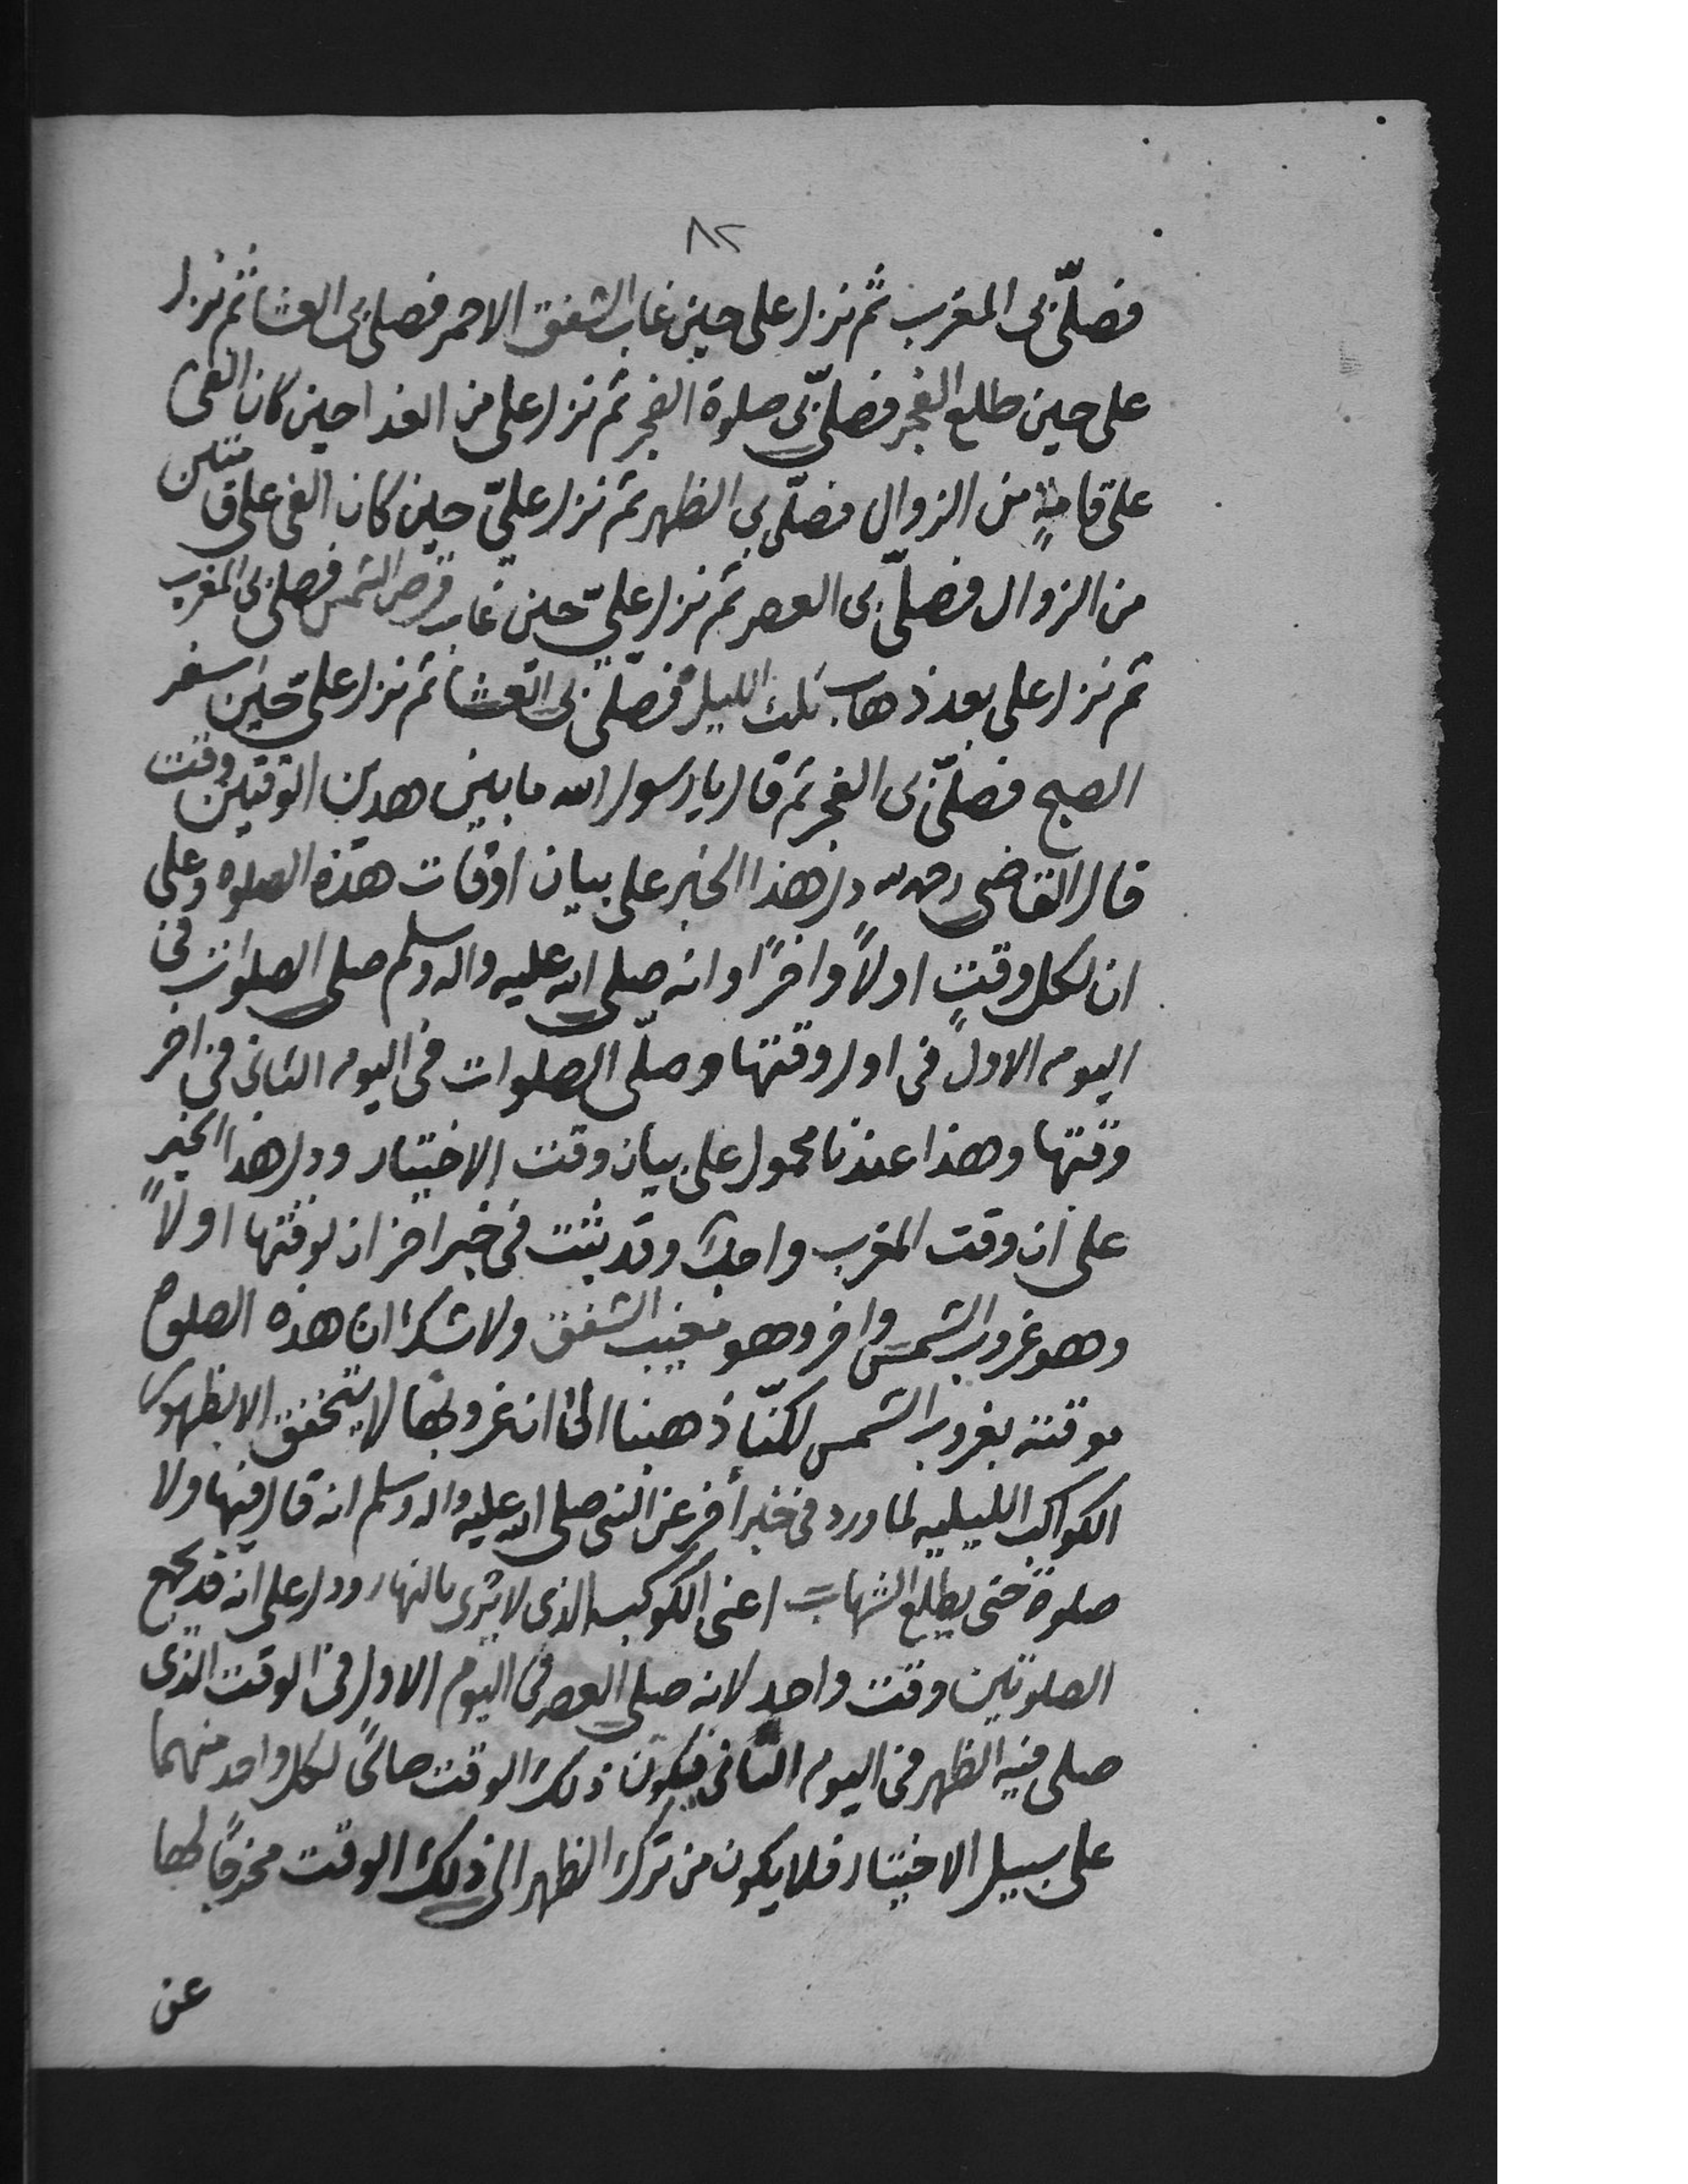 ٨٢
فصلّى بى المغرب ثم نزل على حين غاب الشفق الاحمر فصلى بى العشا ثم نزل
على حين طلع الفجر فصلّى بى صلوة الفجر ثم نزل على من الغد احين كان الفى
على قامةٍ من الزوال فصلّى بى الظهر ثم نزل عليّ حين كان الفى على قامتين
من الزوال فصلّى بى العصر ثم نزل عليّ حين غاب قرص الشمس فصلى بى المغرب
ثم نزل على بعد ذهاب ثلث الليل فصلّى بى العشا ثم نزل على حين اسفر
الصبح فصلّى بى الفجر ثم قال يا رسول الله ما بين هدين الوقتين وقت
قال القاضى رحمه الله دل هذا الخبر على بيان اوقات هذه الصلوه وعلى
ان لكل وقتٍ اولاً واخرًا وانه صلى الله عليه واله وسلم صلى الصلوات فى
اليوم الاول فى اول وقتها وصلّى الصلوات فى اليوم الثانى فى اخر
وقتها وهذا عندنا محمول على بيان وقت الاختيار ودل هذا الخبر
على ان وقت المغرب واحد وقد ثبت فى خبر اخر ان لوقتها اولاً
وهو غروب الشمس واخر وهو مغيب الشفق ولا شك ان هذه الصلوة
موقتة بغروب الشمس لكنّا ذهبنا الى ان غروبها لا يتحقق الا بظهور
الكواكب الليليه لما ورد فى خبر أخر عن النبى صلى الله عليه واله وسلم انه قال فيها ولا
صلوة حتى يطلع الشهاب اعنى الكوكب الذى لا يرى بالنهار ودل على انه قد يجمع
الصلوتين وقت واحد لانه صلى العصر فى اليوم الاول فى الوقت الذى
صلى فيه الظهر فى اليوم الثانى فيكون ذلك الوقت صالحًا لكل واحد منهما
على سبيل الاختيار فلا يكون من ترك الظهر الى ذلك الوقت مخرجًا لها
عن